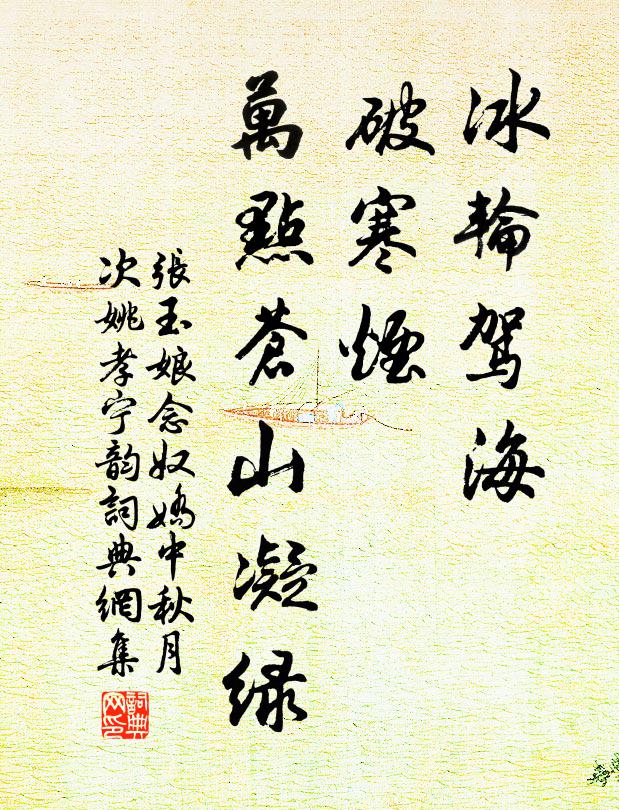 冰輪駕海
破寒煙
萬點蒼山凝緑
張玉娘念奴嬌中秋月
次姚孝宁韵詞典網集
詞典
网印